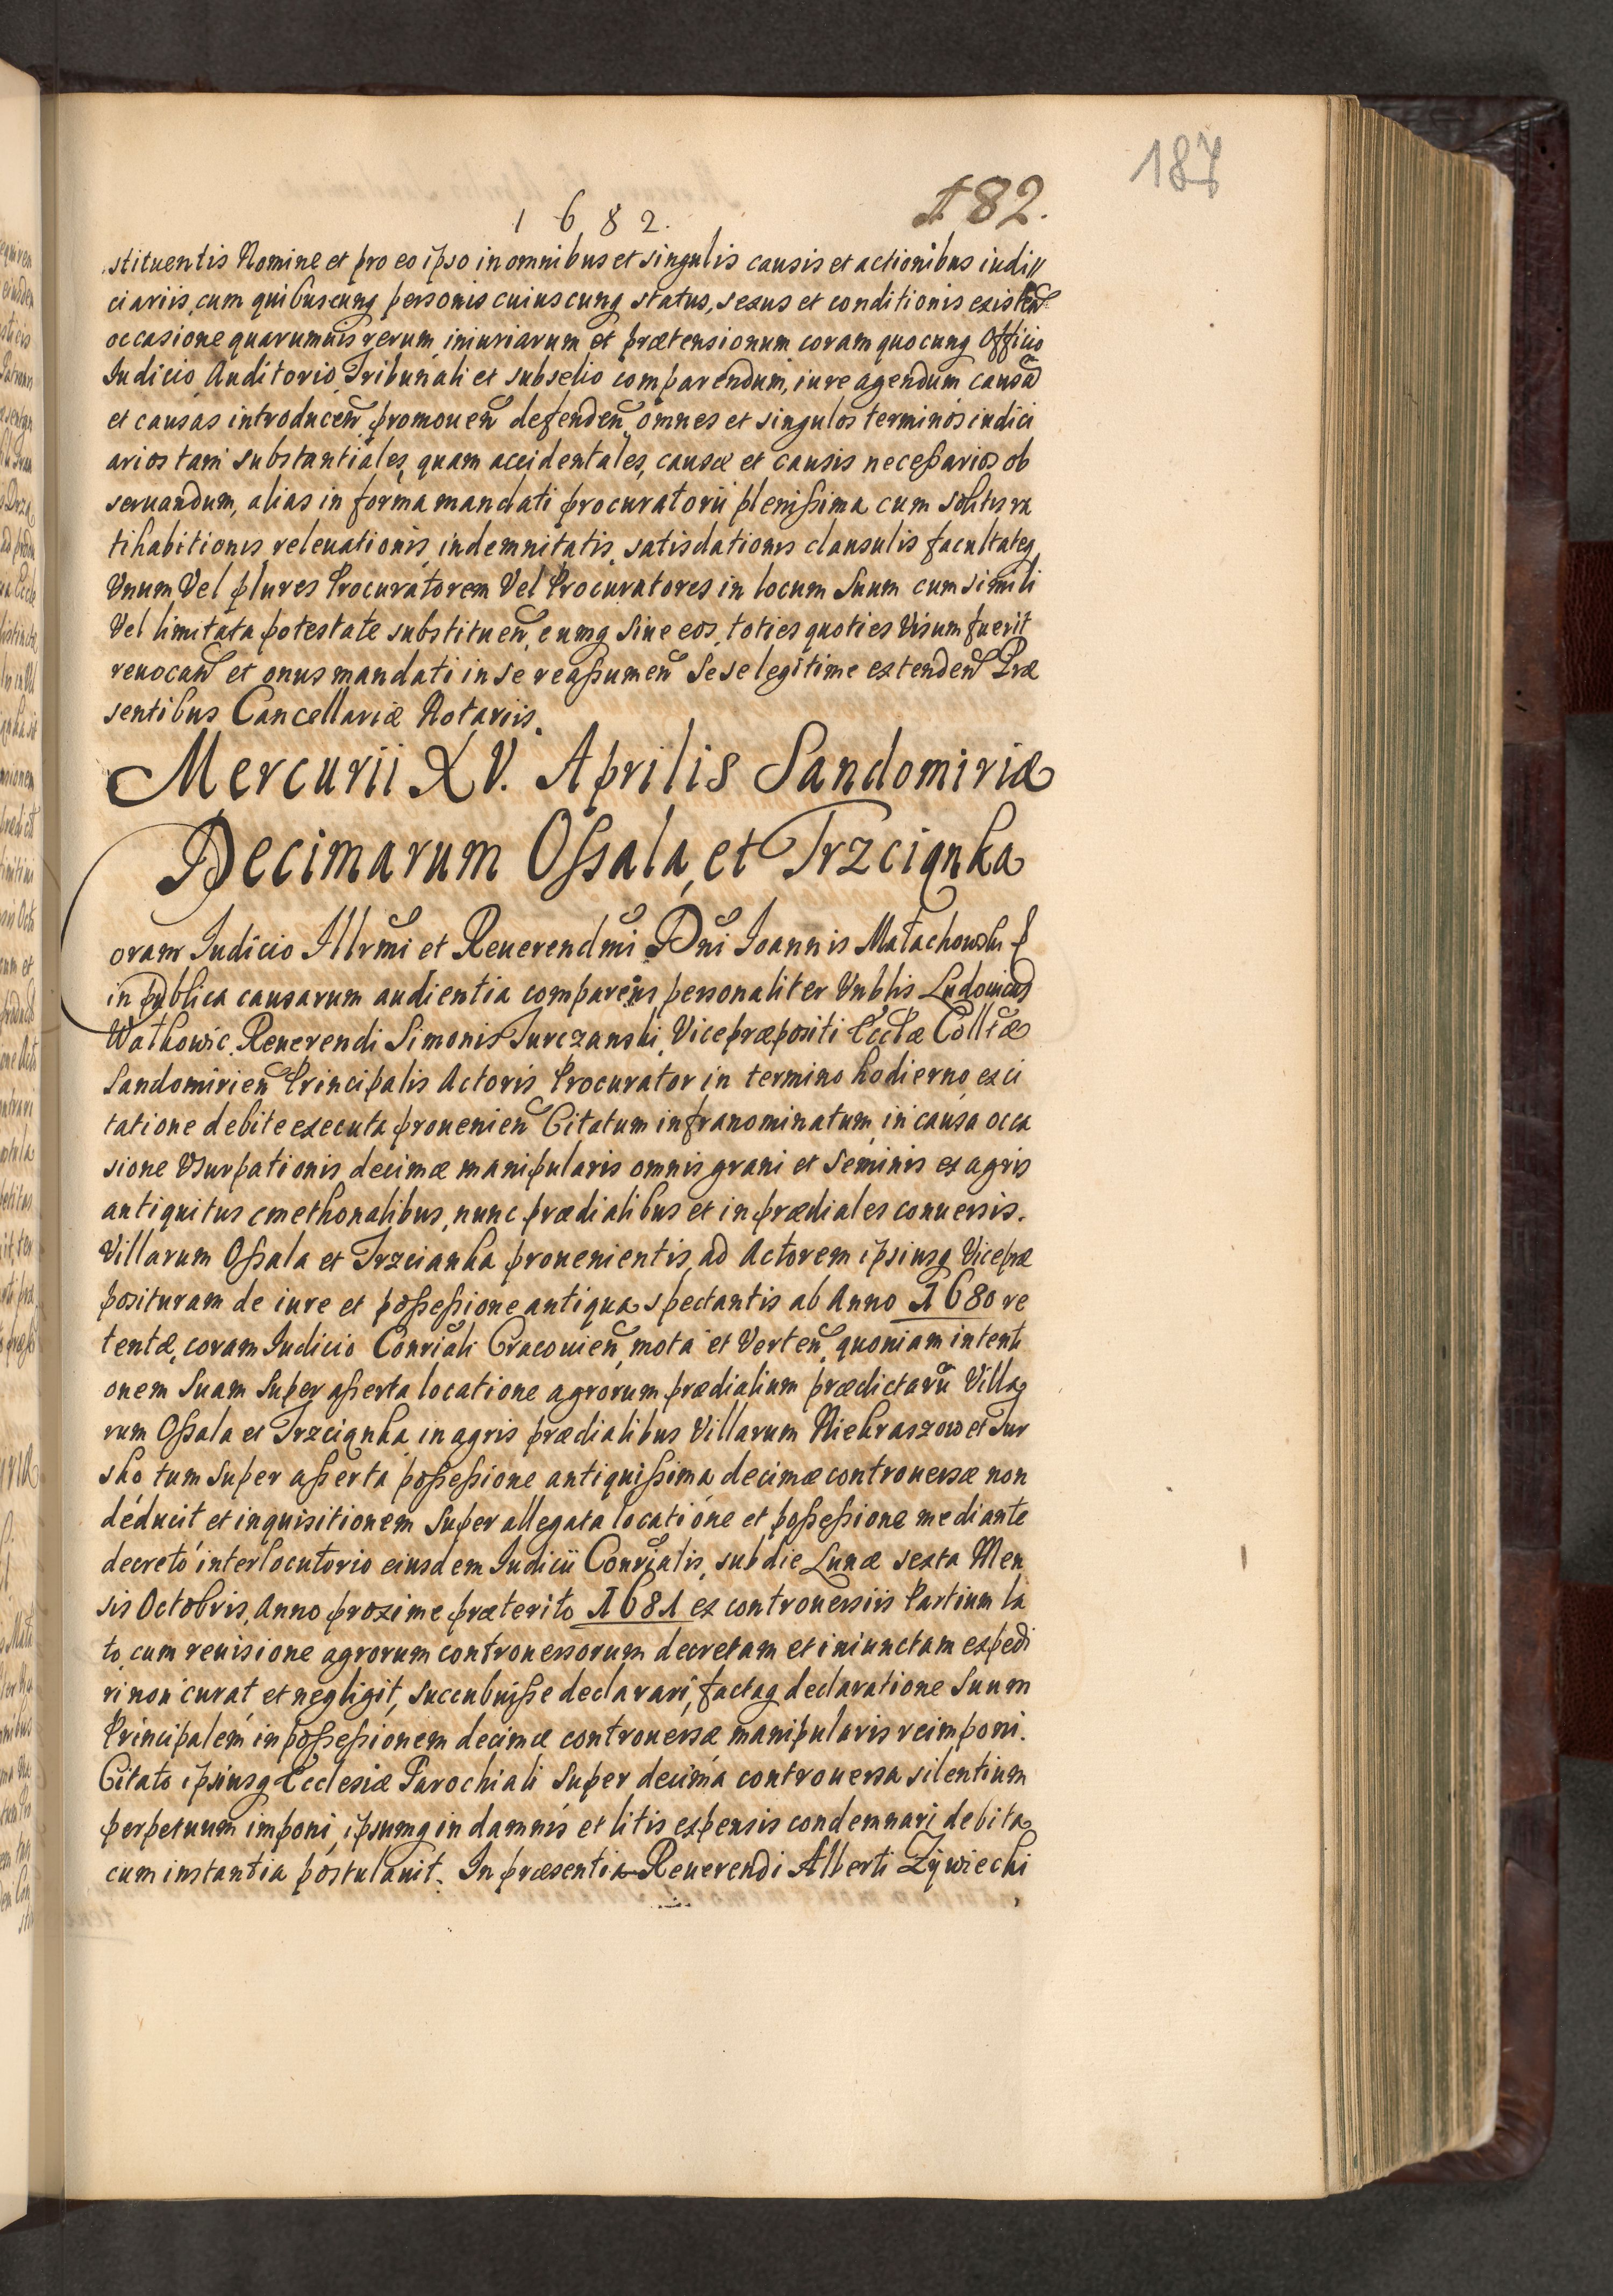 187
182.
1682.
stituentis Nomine et pro eo ipso in omnibus et singulis causis et actionibus iudi//
ciariis, cum quibuscunq personis cuiuscunq status, sexus et conditionis existen
occasione quarumuis rerum iniuriarum et prætensionum coram quocunq Officio
Iudicio Auditorio Tribunali et subselio comparendum, iure agendum causã
et causas introducen̄ promouen̄ defenden̄, omnes et singulos terminos iudici
arios tam substantiales, quam accidentales, causæ et causis neceßarios ob
seruandum, alias in forma mandati procuratorii plenißima cum solitis ra
tihabitionis releuationis, indemnitatis, satisdationis clausulis facultateq
Vnum Vel plures Procuratorem Vel Procuratores in locum Suum cum simili
Vel limitata potestate substituen̄, eumq Siue eos, toties quoties Visum fuerit
reuocan̄ et onus mandati in se reaßumen̄ Sese legitime extenden̄ Præ
sentibus Cancellariæ Notariis.
Mercurii XV. Aprilis Sandomiriæ
Decimarum Oßala, et Trzciąnka
Coram Iudicio Illrm̄i et Reuerendm̄i Dn̄i Ioannis Małachowski ⨍
in publica causarum audientia comparens personaliter Vnblis Ludouicus
Wathowic, Reuerendi Simonis Iurczanski, Vicepræpositi Eccłæ Collłæ
Sandomirien̄ Principalis Actoris Procurator in termino hodierno ex ci
tatione debite executa prouenien̄ Citatum infranominatum, in causa occa
sione Vsurpationis decimæ manipularis omnis grani et Seminis ex agris
antiquitus cmethonalibus, nunc prædialibus et in prædiales conuersis.
Villarum Oßala et Trzcianka prouenientis, ad Actorem ipsiusq Vicepræ
posituram de iure et poßeßione antiqua spectantis ab Anno 1680 re
tentæ, coram Iudicio Conrsiali Cracouien̄, mota et Verten̄, quoniam intenti
onem Suam Super aßerta locatione agrorum prædialium prædictarũ Villa
rum Oßala et Trzciąnka in agris prædialibus Villarum Niekraszow et Tur
sko tum Super aßerta poßeßione antiquißima decimæ controuersæ non
deducit et inquisitionem Super allegata locatione et poßeßione mediante
decreto interlocutorio eiusdem Iudicii Conrsialis, sub die Lunæ sexta Men
sis Octobris, Anno proxime præterito 1681 ex controuersiis Partium la
to, cum reuisione agrorum controuersorum decretam et iniunctam expedi
ri non curat et negligit, Succubuiße declarari, factaq declaratione Suum
Principalem in poßeßionem decimæ controuersæ manipularis reimponi.
Citato ipsiusq Ecclesiæ Parochiali Super decima controuersa silentium
perpetuum imponi, ipsumq in damnis et litis expensis condemnari debita
cum instantia postulauit. In præsentia Reuerendi Alberti Zÿwiecki